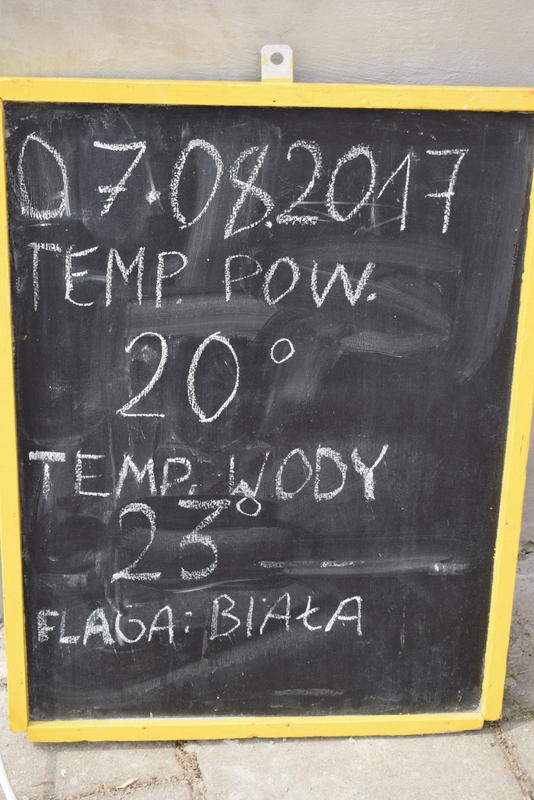 07.08.2017
TEMP. POW.
20°
TEMP. WODY
23°
FLAGA: BIAŁA